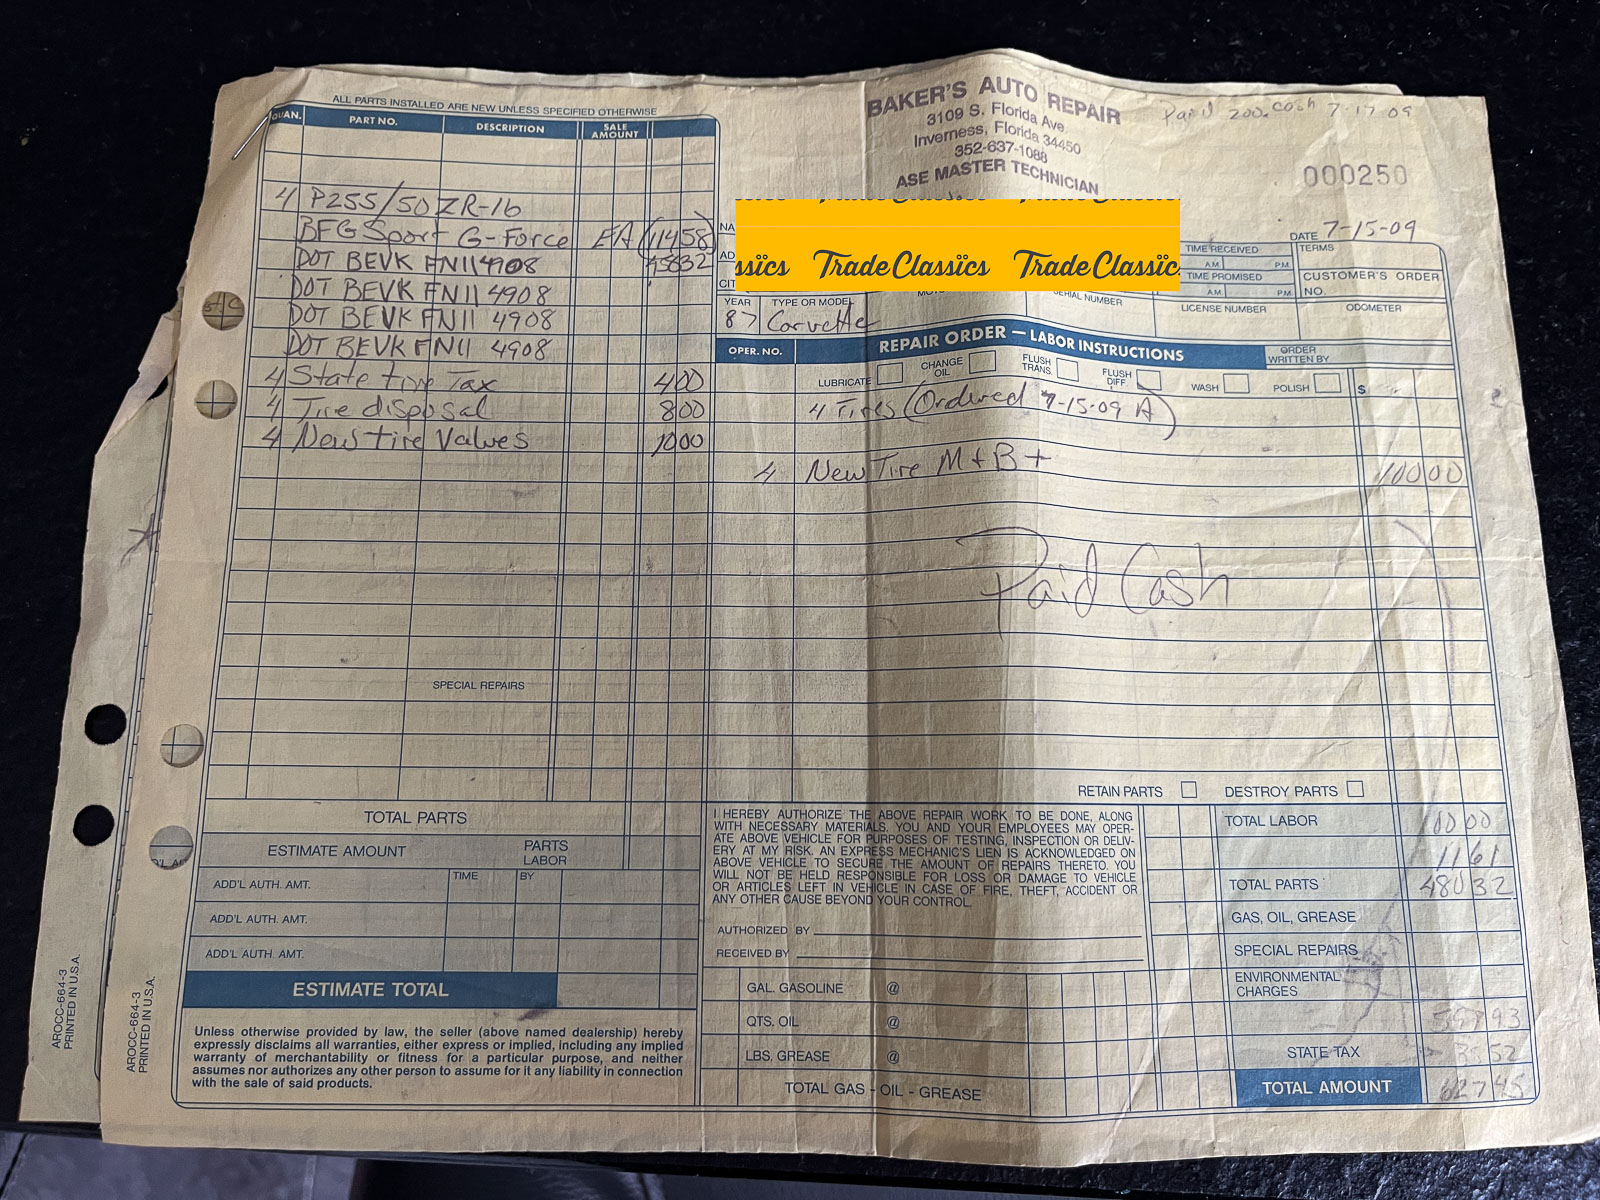 ALL PARTS INSTALLED ARE NEW UNLESS SPECIFIED OTHERWISE
QUAN. PART NO. DESCRIPTION SALE AMOUNT
4 P255/50ZR-16
BFG Sport G-Force EA (11458)
DOT BEVK FN11 4908 45832
DOT BEVK FN11 4908
DOT BEVK FN11 4908
DOT BEVK FN11 4908
4 State tire Tax 400
4 Tire disposal 800
4 New tire Valves 1000
SPECIAL REPAIRS
TOTAL PARTS
ESTIMATE AMOUNT PARTS LABOR
TIME BY
ADD'L AUTH. AMT.
ADD'L AUTH. AMT.
ADD'L AUTH. AMT.
ESTIMATE TOTAL
Unless otherwise provided by law, the seller (above named dealership) hereby
expressly disclaims all warranties, either express or implied, including any implied
warranty of merchantability or fitness for a particular purpose, and neither
assumes nor authorizes any other person to assume for it any liability in connection
with the sale of said products.
AROCC-664-3
PRINTED IN U.S.A.
AROCC-664-3
PRINTED IN U.S.A.
BAKER'S AUTO REPAIR
3109 S. Florida Ave
Inverness, Florida 34450
352-637-1088
ASE MASTER TECHNICIAN
Paid 200. cash 7-17-09
000250
DATE 7-15-09
NA
AD
CIT
TradeClassics TradeClassic
TIME RECEIVED A.M. P.M.
TERMS
TIME PROMISED A.M. P.M.
CUSTOMER'S ORDER NO.
YEAR TYPE OR MODEL SERIAL NUMBER LICENSE NUMBER ODOMETER
87 Corvette
OPER. NO. REPAIR ORDER — LABOR INSTRUCTIONS ORDER WRITTEN BY
LUBRICATE CHANGE OIL FLUSH TRANS. FLUSH DIFF. WASH POLISH $
4 Tires (Ordered 7-15-09 A)
4 New Tire M+B+ 10000
Paid Cash
RETAIN PARTS DESTROY PARTS
I HEREBY AUTHORIZE THE ABOVE REPAIR WORK TO BE DONE, ALONG
WITH NECESSARY MATERIALS. YOU AND YOUR EMPLOYEES MAY OPER-
ATE ABOVE VEHICLE FOR PURPOSES OF TESTING, INSPECTION OR DELIV-
ERY AT MY RISK. AN EXPRESS MECHANIC'S LIEN IS ACKNOWLEDGED ON
ABOVE VEHICLE TO SECURE THE AMOUNT OF REPAIRS THERETO. YOU
WILL NOT BE HELD RESPONSIBLE FOR LOSS OR DAMAGE TO VEHICLE
OR ARTICLES LEFT IN VEHICLE IN CASE OF FIRE, THEFT, ACCIDENT OR
ANY OTHER CAUSE BEYOND YOUR CONTROL.
AUTHORIZED BY
RECEIVED BY
GAL. GASOLINE @
QTS. OIL @
LBS. GREASE @
TOTAL GAS - OIL - GREASE
TOTAL LABOR 10000
1161
TOTAL PARTS 48032
GAS, OIL, GREASE
SPECIAL REPAIRS
ENVIRONMENTAL CHARGES
STATE TAX
TOTAL AMOUNT 62745